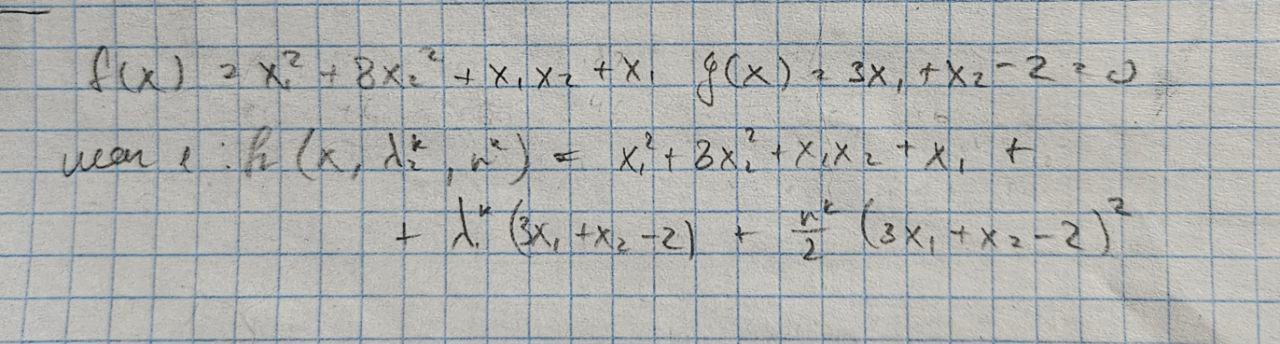 f(x) = x₁² + 8x₂² + x₁x₂ + x₁ g(x) = 3x₁ + x₂ - 2 = 0
шаг 1: h(x, λ₂ᵏ, rᵏ) = x₁² + 8x₂² + x₁x₂ + x₁ +
+ λᵏ (3x₁ + x₂ - 2) + rᵏ/2 (3x₁ + x₂ - 2)²